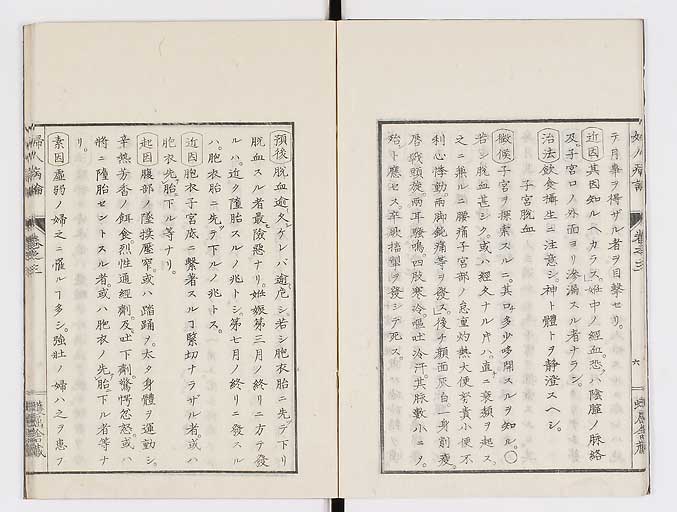 テ月事ヲ得ザル者ヲ目撃セリ。
近因其因知ルヘカラス。姙中ノ經血。恐ハ陰膣ノ脉絡
及。子宮口ノ外面ヨリ滲漏スル者ナラン。
治法飲食攝生ニ注意シ。神ト體トヲ靜澄スヘシ。
子宮脱血
徴候子宮ヲ探索スルニ。其口多少哆開スルヲ知ル。○
若シ脱血甚シク。或ハ經久ナル片ハ。直ニ衰頽ヲ起ス。
之ニ兼ルニ腰痛子宮部ノ怠重灼熱大便努責小便不
利心悸動。兩脚鈍痛等ヲ發ス。後チ顔面灰白一身削瘦。
唇戦頭旋。兩耳騒鳴。四肢寒冷。嘔吐冷汗。其脉數小ニ〆。
殆ト應セス。卒欬搐搦ヲ發シテ死ス。
六
預後脱血逾久ケレバ逾危シ。若シ胞衣胎ニ先テ下リ
脱血スル者。最險惡ナリ。姙娠第三月ノ終リニ方テ發
ルハ。近ク隨胎スルノ兆トシ。第七月ノ終リニ發スル
ハ。胞衣胎ニ先テ下ルノ兆トス。
近因胞衣子宮底ニ繋著スルヿ緊切ナラザル者。或ハ
胞衣先胎下ル等ナリ。
起因腹部ノ墜撲壓窄。或ハ踏踊ヲ。太タ身體ヲ運動シ。
辛熱芳香ノ餌食。烈性通經劑。及。吐下劑。驚愕忿怒。或ハ
將ニ隨胎セントスル者。或ハ胞衣ノ先胎下ル者等ナ
リ。
素因虚弱ノ婦之ニ罹ルヿ多シ。強壯ノ婦ハ之ヲ患ヲ
婦人病論